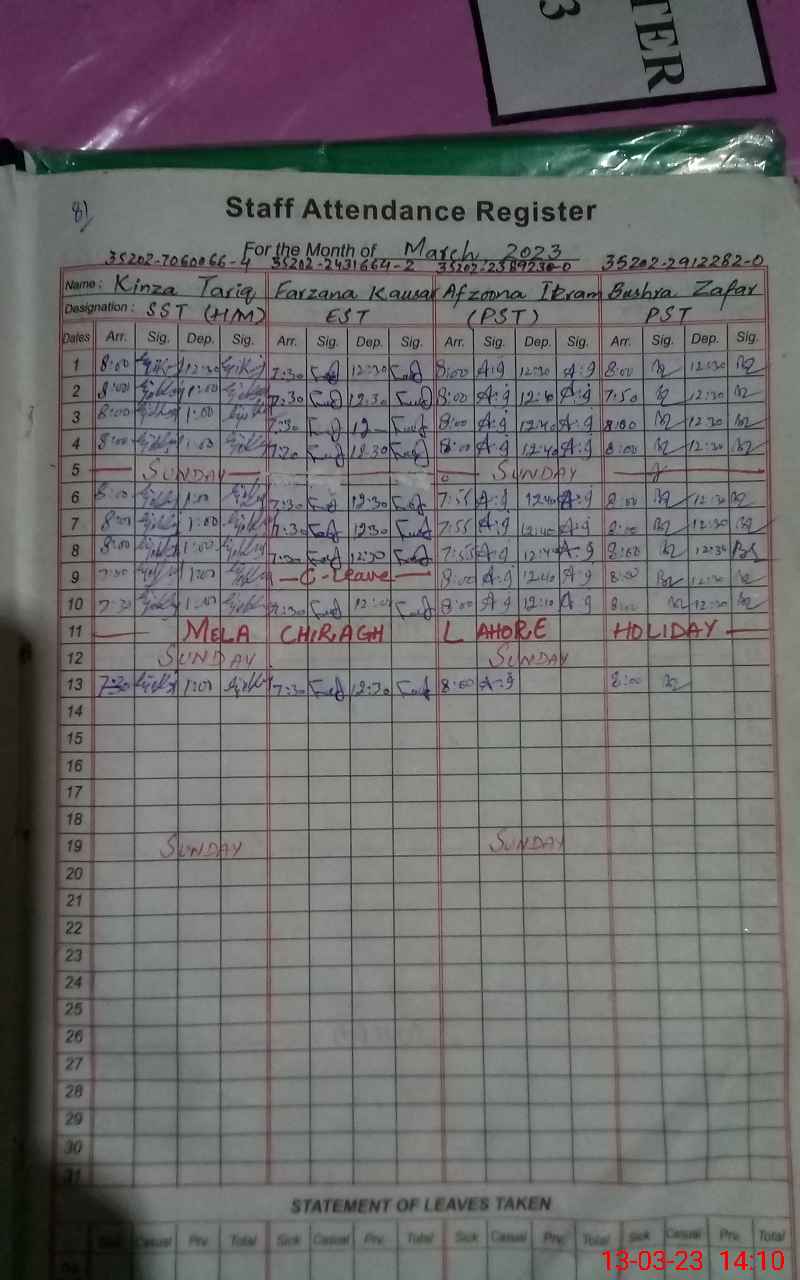 TER
3
81
Staff Attendance Register
For the Month of March, 2023
35202-7060066-4 35202-2431664-2 35202-2389230-0 35202-2912282-0
Name: Kinza Tariq Farzana Kausar Afzoona Ikram Bushra Zafar
Designation: SST (H/M) EST (PST) PST
Dates Arr. Sig. Dep. Sig. Arr. Sig. Dep. Sig. Arr. Sig. Dep. Sig. Arr. Sig. Dep. Sig.
1 8:00 12:30 7:30 12:30 8:00 A.g 12:30 A.g 8:00 12:30
2 8:00 1:00 7:30 12:30 8:00 A.g 12:40 A.g 7:50 12:30
3 8:00 1:00 7:30 12 8:00 A.g 12:40 A.g 8:00 12:30
4 8:00 1:00 7:30 12:30 8:00 A.g 12:40 A.g 8:00 12:30
5 SUNDAY SUNDAY
6 8:00 1:00 7:30 12:30 7:55 A.g 12:40 A.g 8:00 12:30
7 8:00 1:00 7:30 12:30 7:55 A.g 12:40 A.g 8:00 12:30
8 8:00 1:00 7:30 12:30 7:55 A.g 12:40 A.g 8:00 12:30
9 7:30 1:00 C-Leave 8:00 A.g 12:40 A.g 8:00 12:30
10 7:30 1:00 7:30 8:00 A.g 12:10 A.g 8:00 12:30
11 MELA CHIRAGH LAHORE HOLIDAY
12 SUNDAY SUNDAY
13 7:30 1:00 7:30 12:30 8:00 A.g 8:00
14
15
16
17
18
19 SUNDAY SUNDAY
20
21
22
23
24
25
26
27
28
29
30
31
STATEMENT OF LEAVES TAKEN
Sick Casual Prv. Total Sick Casual Prv. Total Sick Casual Prv. Total Sick Casual Prv. Total
13-03-23 14:10